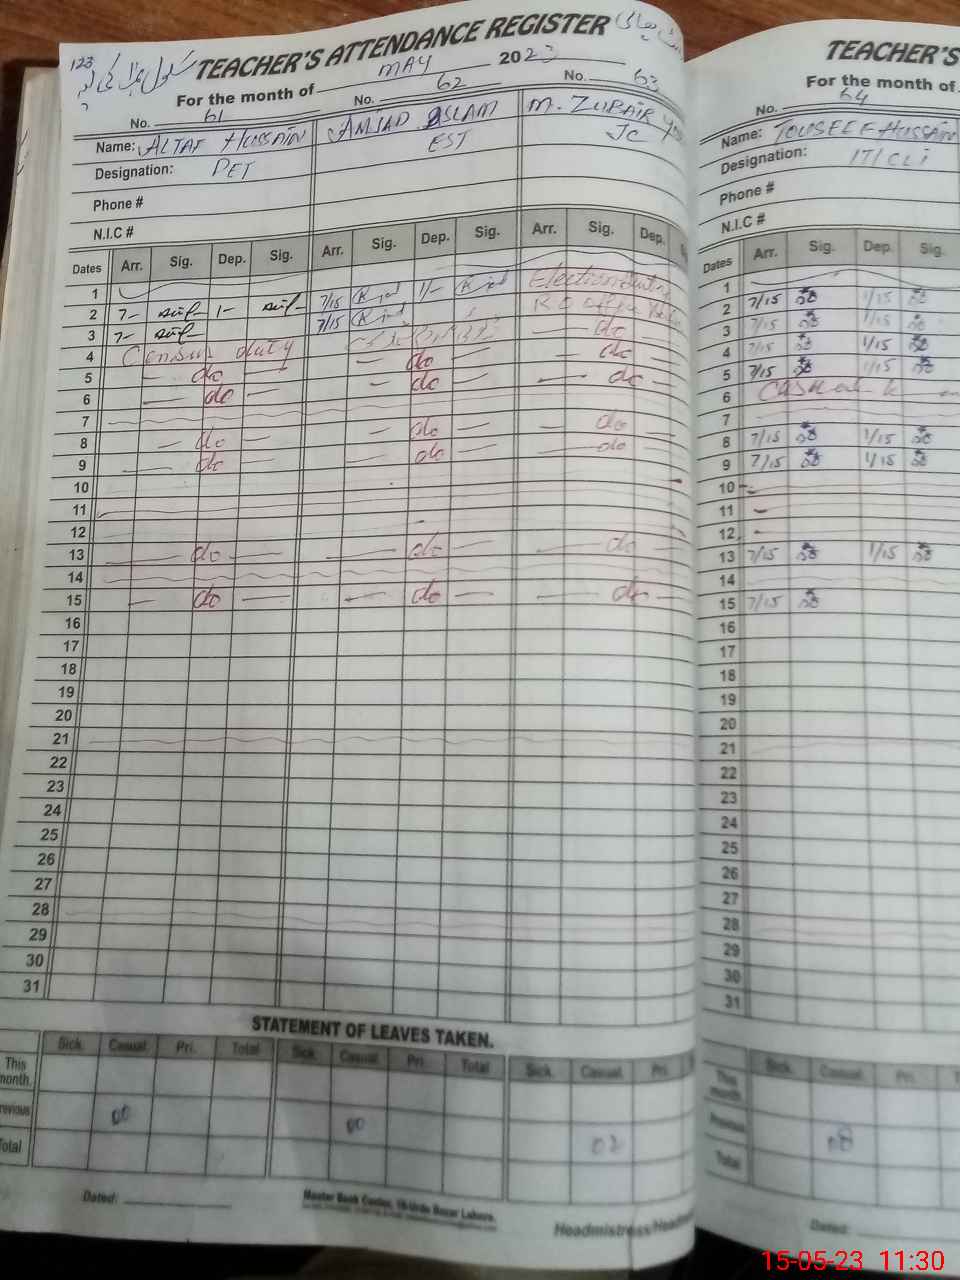 123
TEACHER'S ATTENDANCE REGISTER
For the month of MAY 2023
No. 61 No. 62 No. 63
Name: ALTAF HUSSAIN AMJAD ASLAM M. ZUBAIR
Designation: PET EST JC
Phone #
N.I.C #
Dates Arr. Sig. Dep. Sig. Arr. Sig. Dep. Sig. Arr. Sig. Dep.
1 Election duty
2 7- 1- 7/15 1/-
3 7- 7/15 do
4 Census duty do do
5 do do do
6 do
7
8 do do do
9 do do do
10
11
12
13 do do do
14
15 do do do
16
17
18
19
20
21
22
23
24
25
26
27
28
29
30
31
STATEMENT OF LEAVES TAKEN.
Sick. Casual. Pri. Total Sick. Casual. Pri. Total Sick. Casual. Pri.
This month.
revious 00 00 02
Total
Dated:
Master Book Center, 18-Urdu Bazar Lahore.
Headmistress/Headm
TEACHER'S
For the month of
No. 64
Name: TOUSEEF HUSSAIN
Designation:
Phone #
N.I.C #
Dates Arr. Sig. Dep. Sig.
1
2 7/15 1/15
3 7/15 1/15
4 7/15 1/15
5 7/15 1/15
6
7
8 7/15 1/15
9 7/15 1/15
10
11
12
13 7/15 1/15
14
15 7/15
16
17
18
19
20
21
22
23
24
25
26
27
28
29
30
31
Sick. Casual. Pri.
This month
Previous 08
Total
Dated:
15-05-23 11:30